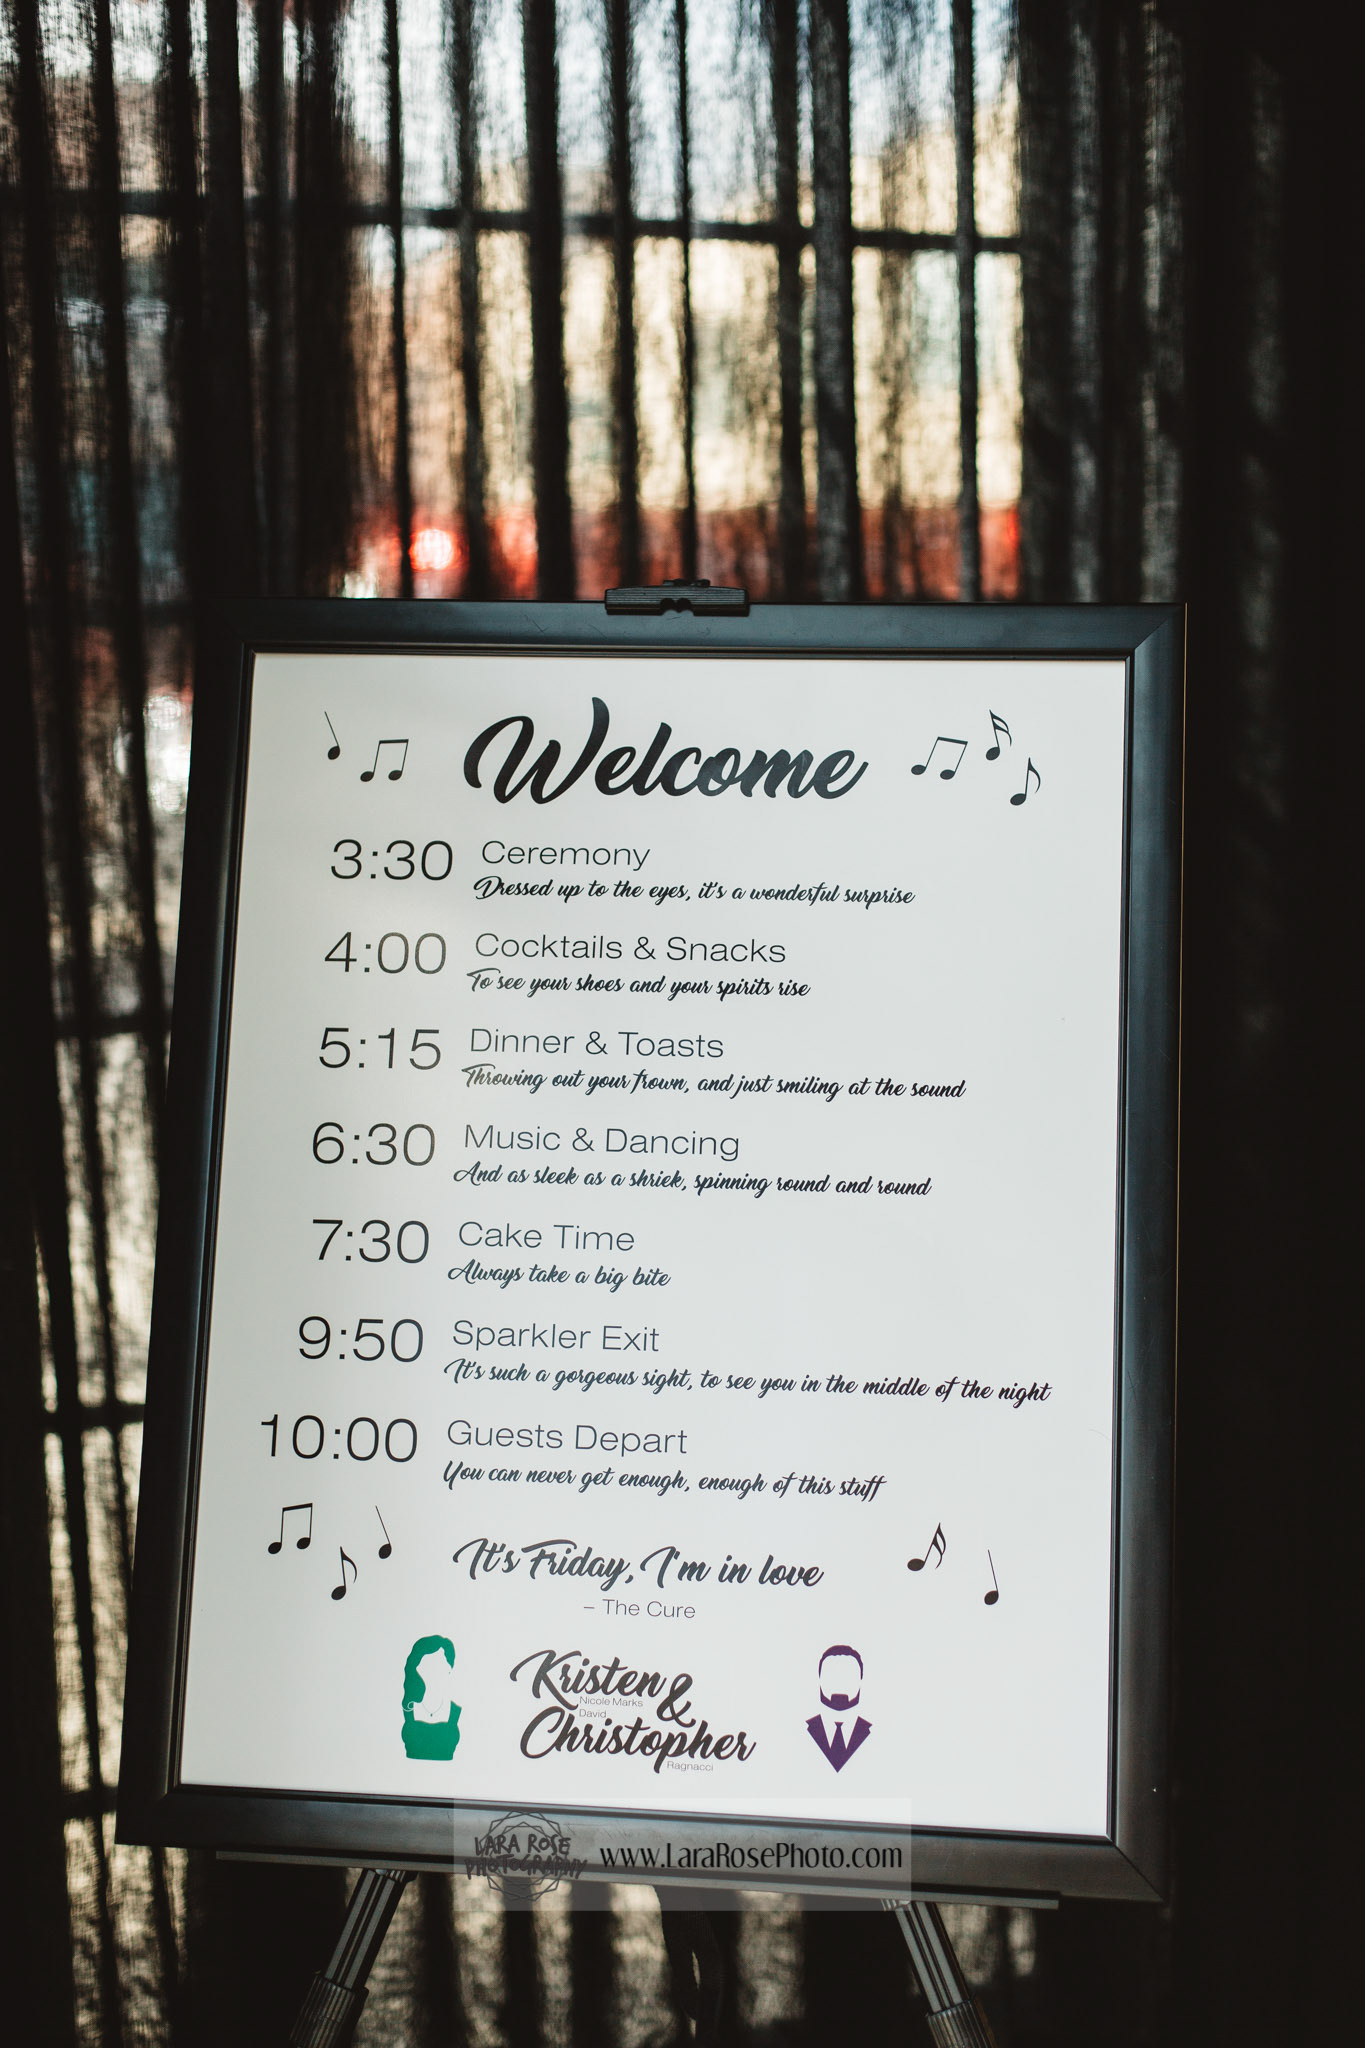 Welcome
3:30 Ceremony
Dressed up to the eyes, it's a wonderful surprise
4:00 Cocktails & Snacks
To see your shoes and your spirits rise
5:15 Dinner & Toasts
Throwing out your frown, and just smiling at the sound
6:30 Music & Dancing
And as sleek as a shriek, spinning round and round
7:30 Cake Time
Always take a big bite
9:50 Sparkler Exit
It's such a gorgeous sight, to see you in the middle of the night
10:00 Guests Depart
You can never get enough, enough of this stuff
It's Friday, I'm in love
– The Cure
Kristen &
Nicole Marks
David
Christopher
Ragnacci
LARA ROSE
PHOTOGRAPHY
www.LaraRosePhoto.com